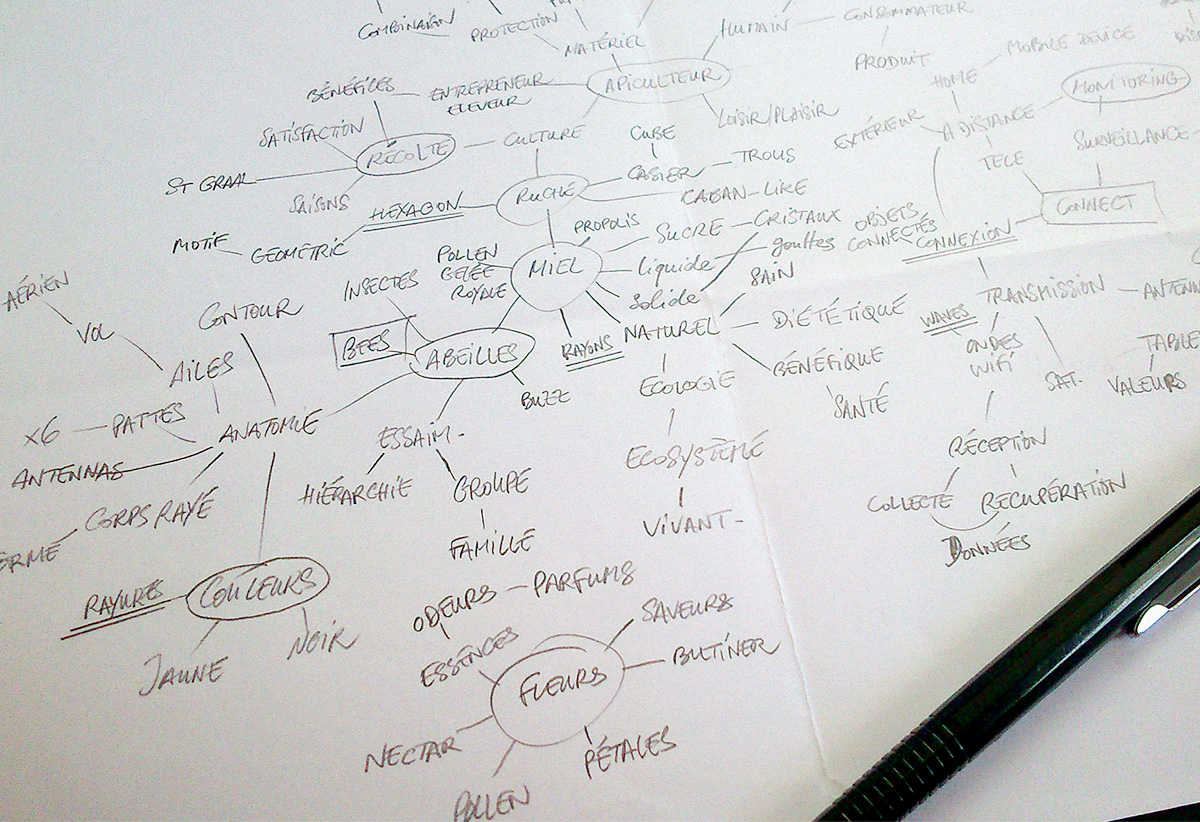 COMBINAISON
PROTECTION
MATÉRIEL
HUMAIN
CONSOMMATEUR
PRODUIT
MOBILE DEVICE
HOME
MONITORING
BÉNÉFICES
ENTREPRENEUR
ELEVEUR
APICULTEUR
LOISIR/PLAISIR
EXTÉRIEUR
A DISTANCE
SURVEILLANCE
TELE
CONNECT
SATISFACTION
RÉCOLTE
CULTURE
CUBE
CASIER
TROUS
ST GRAAL
SAISONS
HEXAGON
RUCHE
MOTIF
GEOMETRIC
PROPOLIS
SUCRE
CRISTAUX
gouttes
OBJETS
CONNECTÉS
CONNEXION
POLLEN
GELÉE
ROYALE
MIEL
liquide
Solide
SAIN
INSECTES
AÉRIEN
VOL
CONTOUR
AILES
BEES
ABEILLES
RAYONS
NATUREL
DIÉTÉTIQUE
WAVES
TRANSMISSION
ONDES
WIFI
SAT.
VALEURS
BUZZ
ECOLOGIE
BÉNÉFIQUE
SANTÉ
X6
PATTES
ANATOMIE
ESSAIM
ANTENNAS
HIÉRARCHIE
GROUPE
FAMILLE
ECOSYSTÈME
VIVANT
RÉCEPTION
COLLECTE
RECUPÉRATION
DONNÉES
CORPS RAYÉ
RAYURES
COULEURS
JAUNE
NOIR
ODEURS
PARFUMS
ESSENCES
FLEURS
SAVEURS
BUTINER
NECTAR
POLLEN
PÉTALES